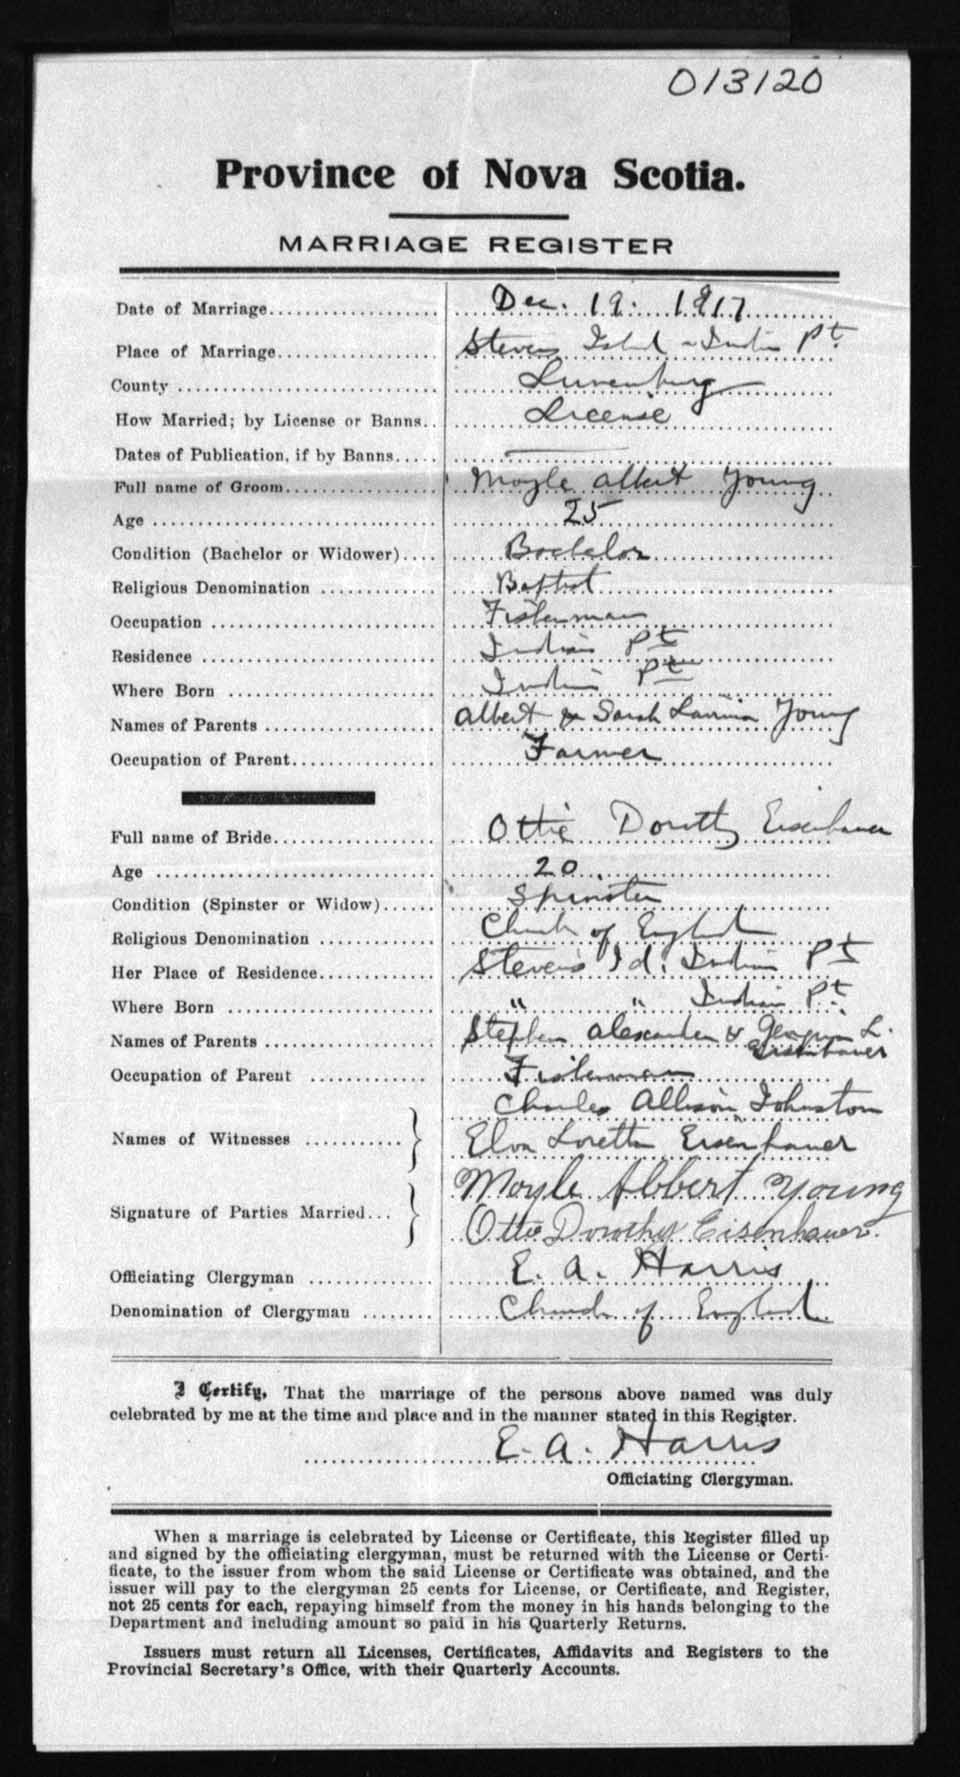 013120
Province of Nova Scotia.
MARRIAGE REGISTER
Date of Marriage Dec. 19. 1917
Place of Marriage Stevens Isld - Indian Pt.
County Lunenburg
How Married; by License or Banns License
Dates of Publication, if by Banns —
Full name of Groom Moyle Albert Young
Age 25
Condition (Bachelor or Widower) Bachelor
Religious Denomination Baptist
Occupation Fisherman
Residence Indian Pt
Where Born Indian Pt
Names of Parents Albert & Sarah Young
Occupation of Parent Farmer
Full name of Bride Ottie Dorothy Eisenhauer
Age 20
Condition (Spinster or Widow) Spinster
Religious Denomination Church of England
Her Place of Residence Stevens Id. Indian Pt
Where Born " " Indian Pt.
Names of Parents Stephen Alexander & L. Eisenhauer
Occupation of Parent Fisherman
Names of Witnesses Charles Allison Johnston
Elva Loretta Eisenhauer
Signature of Parties Married Moyle Albbert Young
Ottie Dorothy Eisenhauer.
Officiating Clergyman E. A. Harris
Denomination of Clergyman Church of England
I Certify, That the marriage of the persons above named was duly
celebrated by me at the time and place and in the manner stated in this Register.
E. A. Harris
Officiating Clergyman.
When a marriage is celebrated by License or Certificate, this Register filled up
and signed by the officiating clergyman, must be returned with the License or Certi-
ficate, to the issuer from whom the said License or Certificate was obtained, and the
issuer will pay to the clergyman 25 cents for License, or Certificate, and Register,
not 25 cents for each, repaying himself from the money in his hands belonging to the
Department and including amount so paid in his Quarterly Returns.
Issuers must return all Licenses, Certificates, Affidavits and Registers to the
Provincial Secretary's Office, with their Quarterly Accounts.